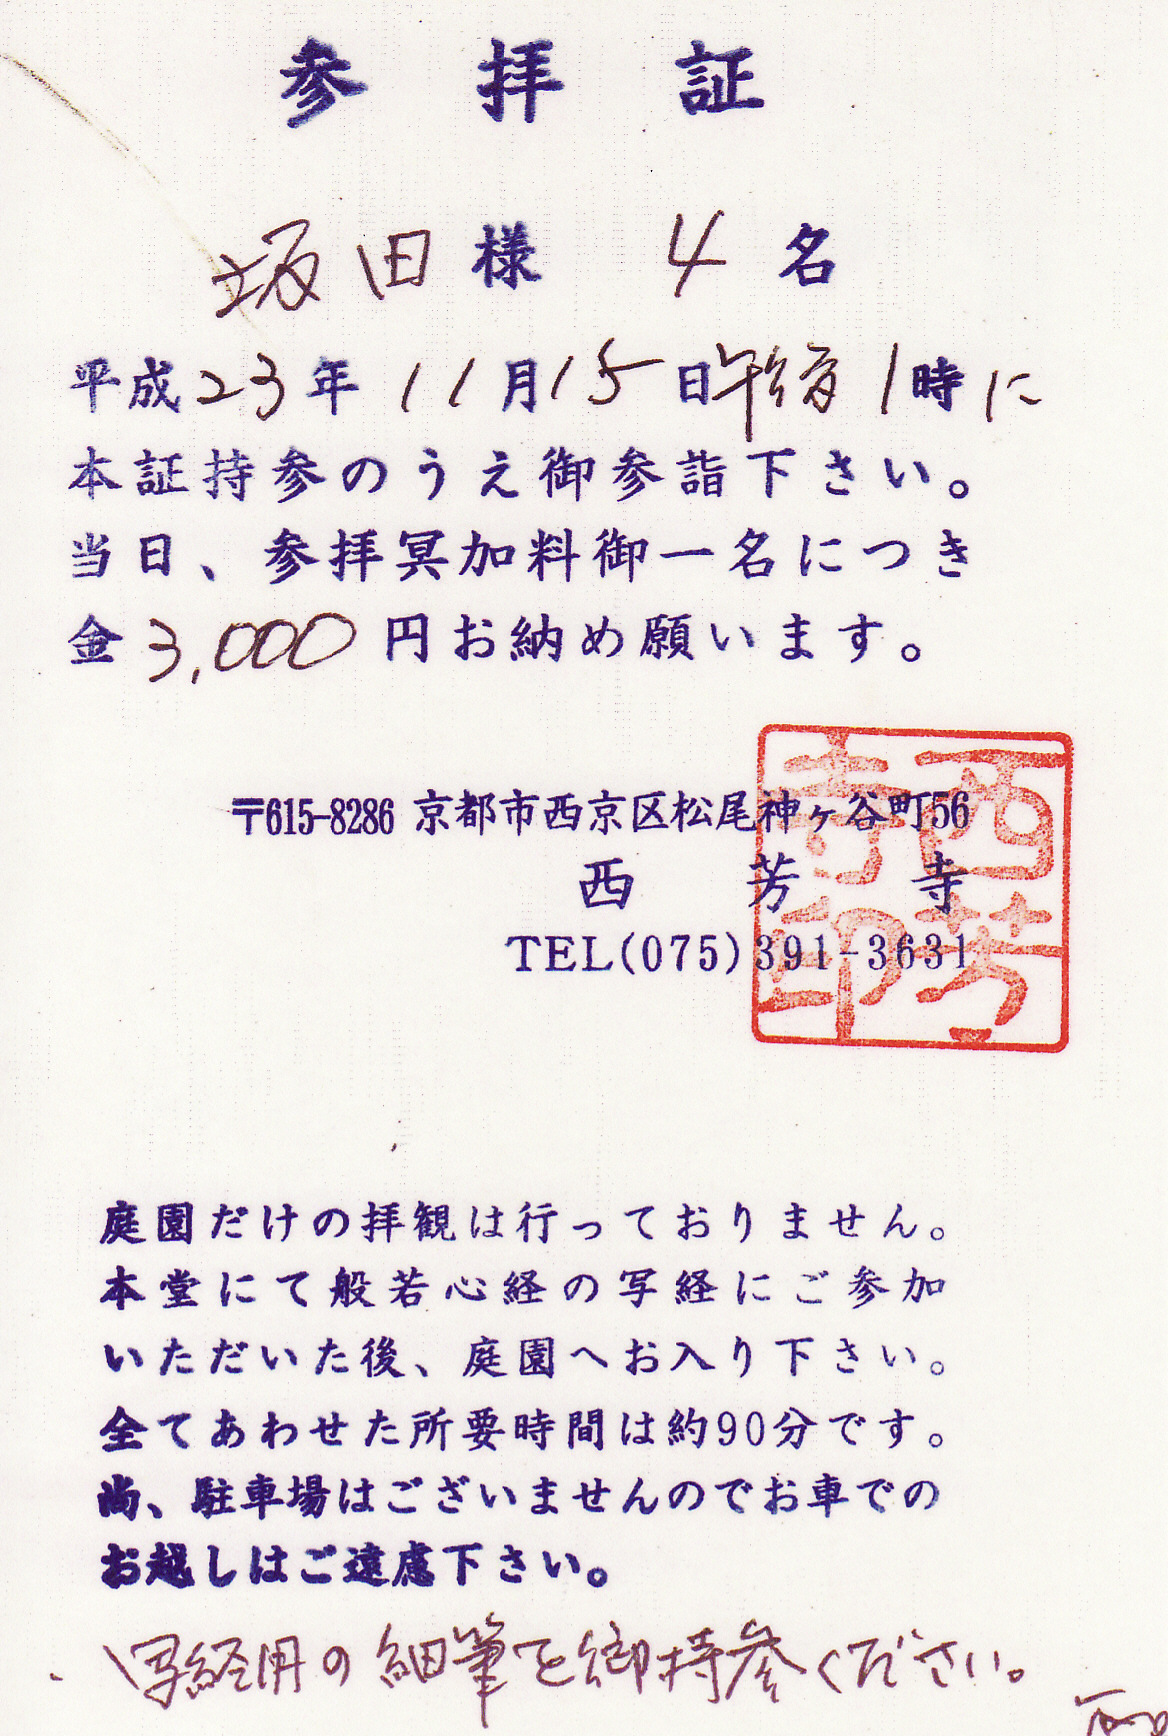 参拝証
坂田様 4名
平成23年11月15日午後1時に
本証持参のうえ御参詣下さい。
当日、参拝冥加料御一名につき
金3,000円お納め願います。
〒615-8286 京都市西京区松尾神ヶ谷町56
西芳寺
TEL(075)391-3631
西芳寺印
庭園だけの拝観は行っておりません。
本堂にて般若心経の写経にご参加
いただいた後、庭園へお入り下さい。
全てあわせた所要時間は約90分です。
尚、駐車場はございませんのでお車での
お越しはご遠慮下さい。
写経用の細筆を御持参ください。